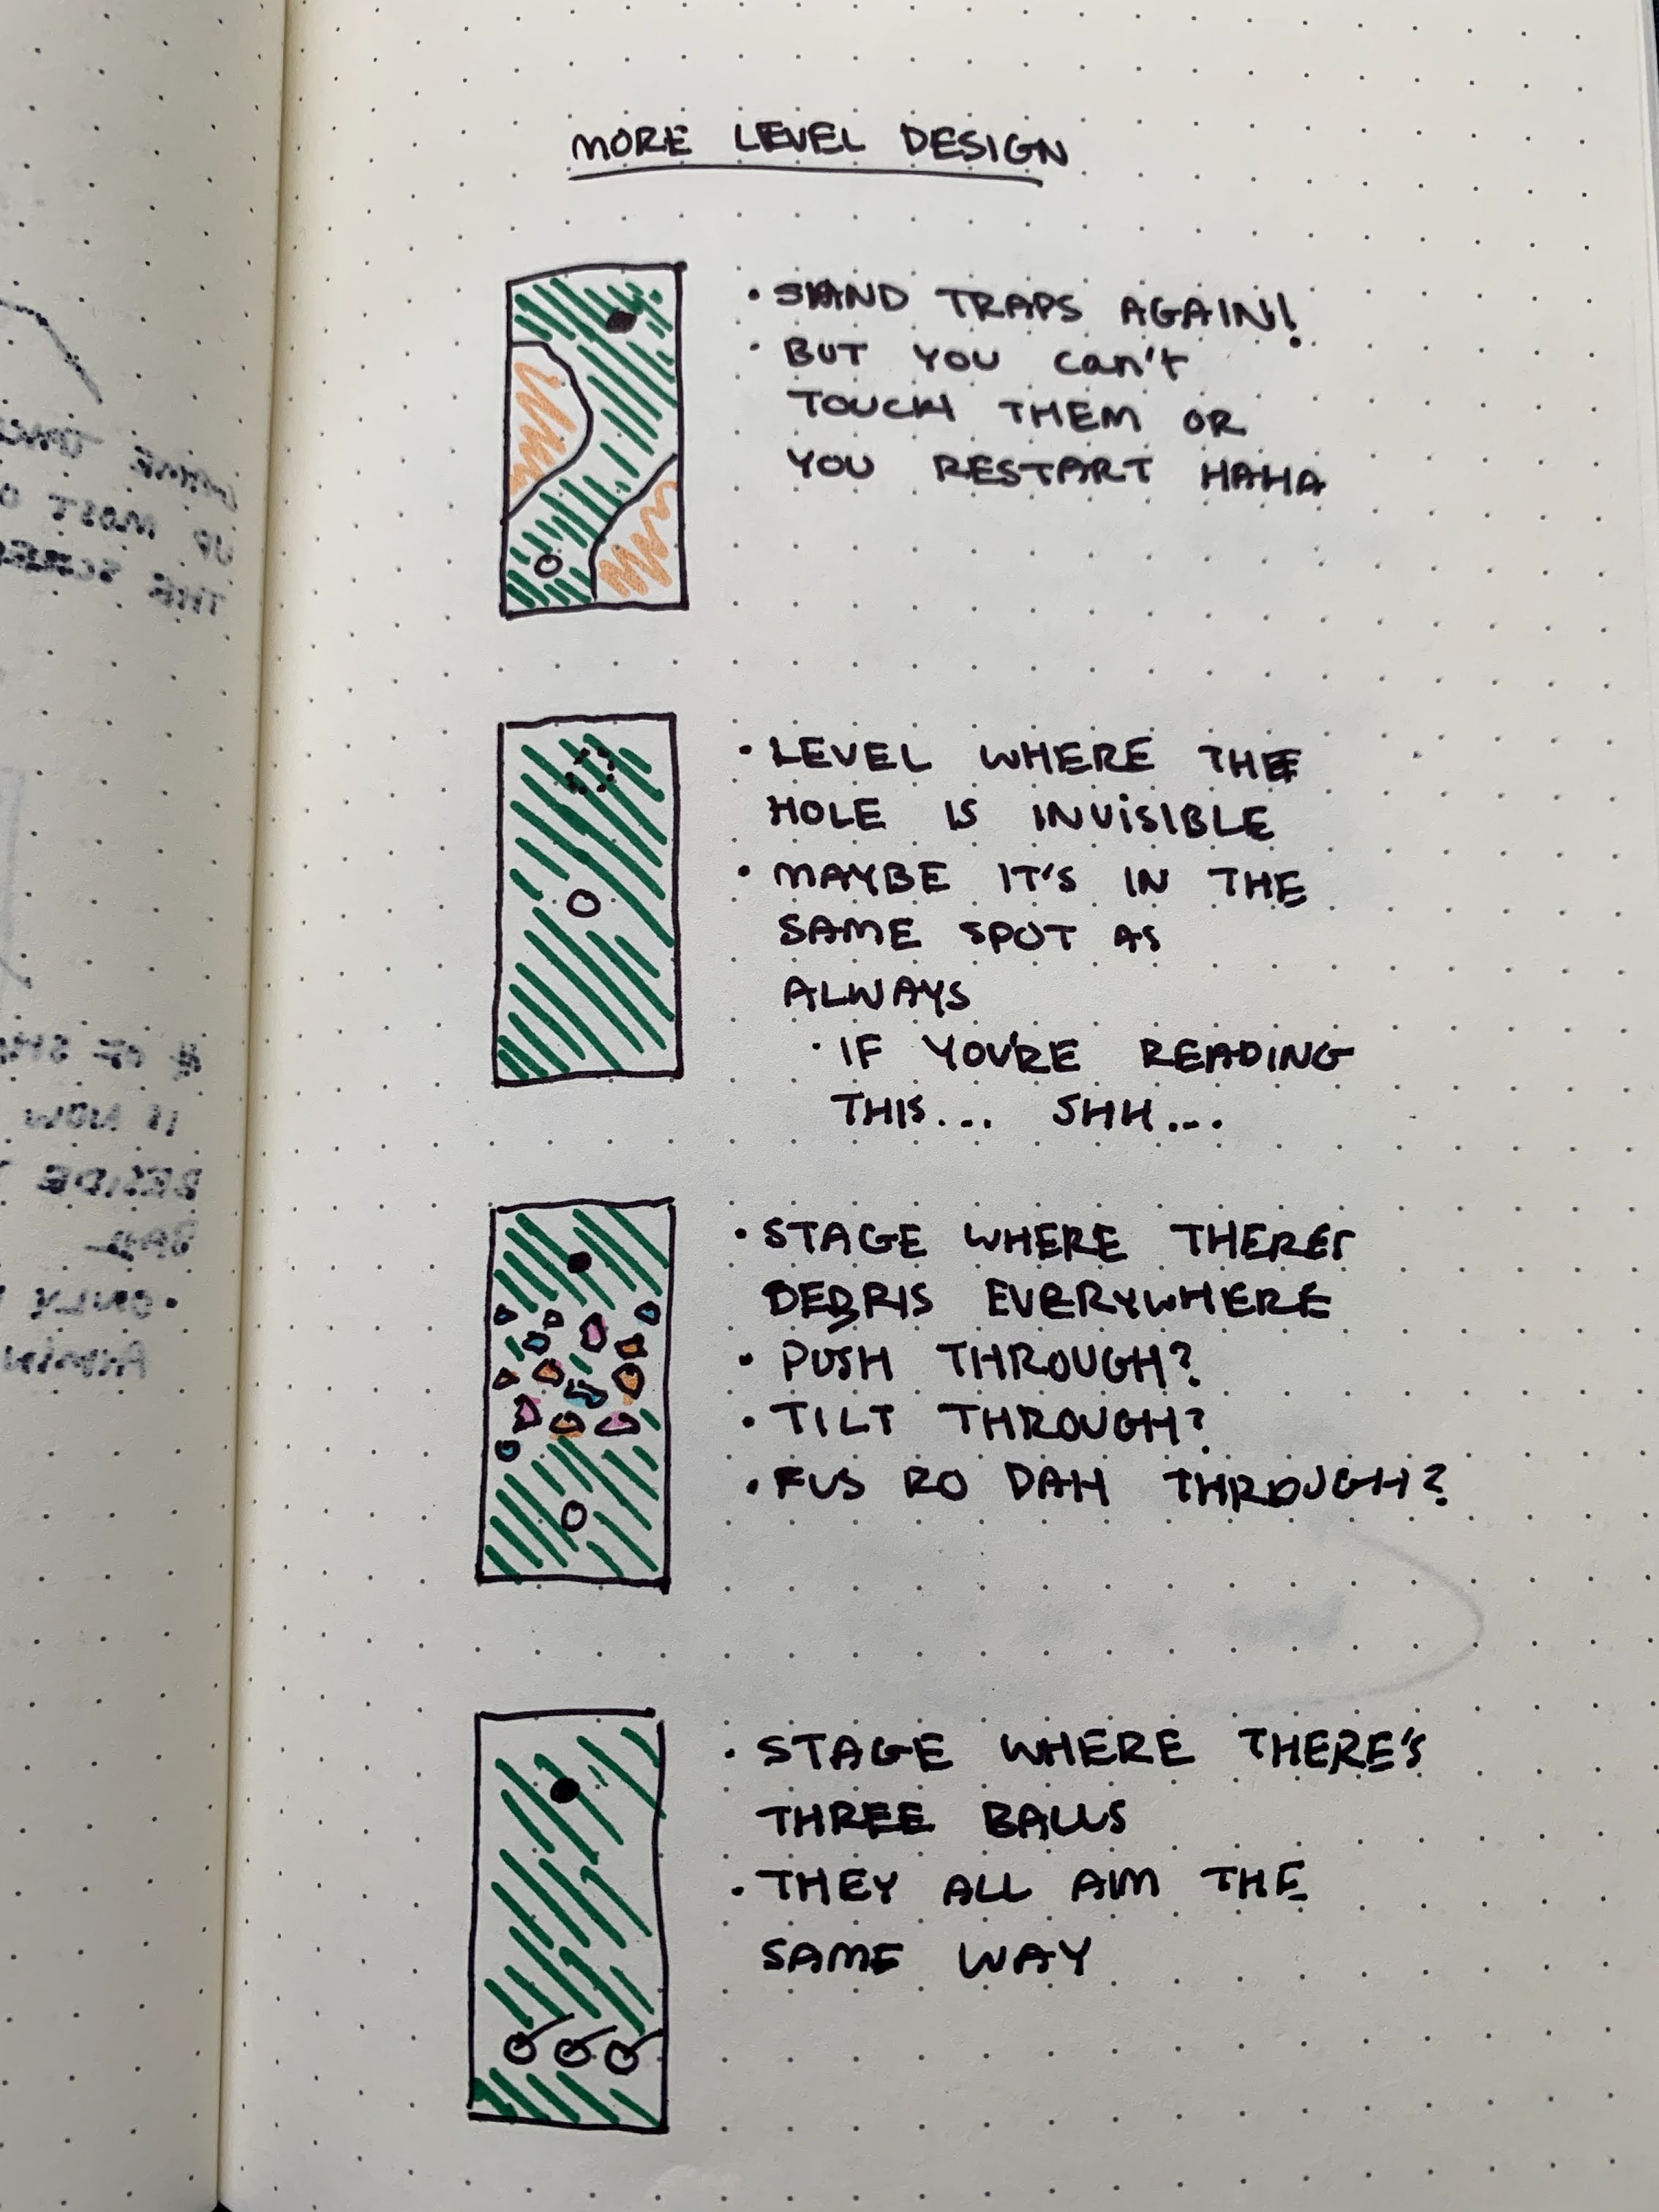 MORE LEVEL DESIGN
• SAND TRAPS AGAIN!
• BUT YOU can't
TOUCH THEM OR
YOU RESTART HAHA
• LEVEL WHERE THE
HOLE IS INVISIBLE
• MAYBE IT'S IN THE
SAME SPOT AS
ALWAYS
• IF YOU'RE READING
THIS... SHH...
• STAGE WHERE THERE'S
DEBRIS EVERYWHERE
• PUSH THROUGH?
• TILT THROUGH?
• FUS RO DAH THROUGH?
• STAGE WHERE THERE'S
THREE BALLS
• THEY ALL AIM THE
SAME WAY